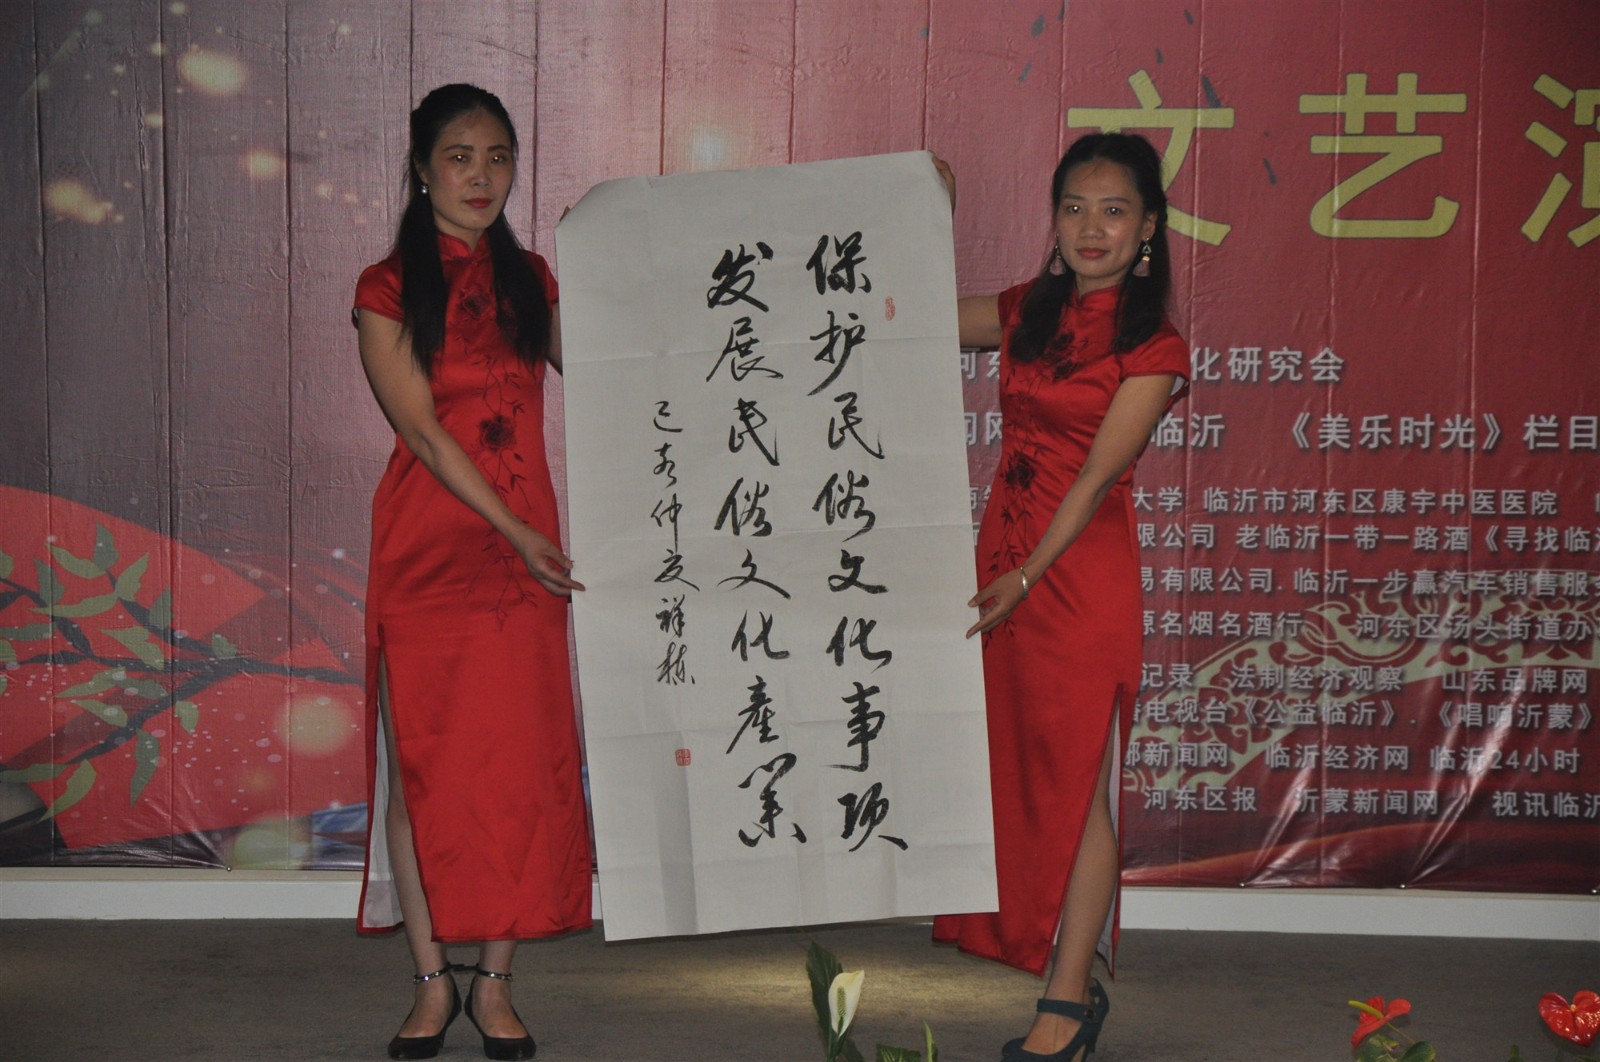 文艺演
保护民俗文化事项
发展民俗文化产业
己亥仲夏祥栋
河东 化研究会
闻网 临沂 《美乐时光》栏目
大学 临沂市河东区康宇中医医院
限公司 老临沂一带一路酒《寻找临沂
易有限公司.临沂一步赢汽车销售服务
原名烟名酒行 河东区汤头街道办
记录 法制经济观察 山东品牌网
播电视台《公益临沂》.《唱响沂蒙》
部新闻网 临沂经济网 临沂24小时
河东区报 沂蒙新闻网 视讯临沂